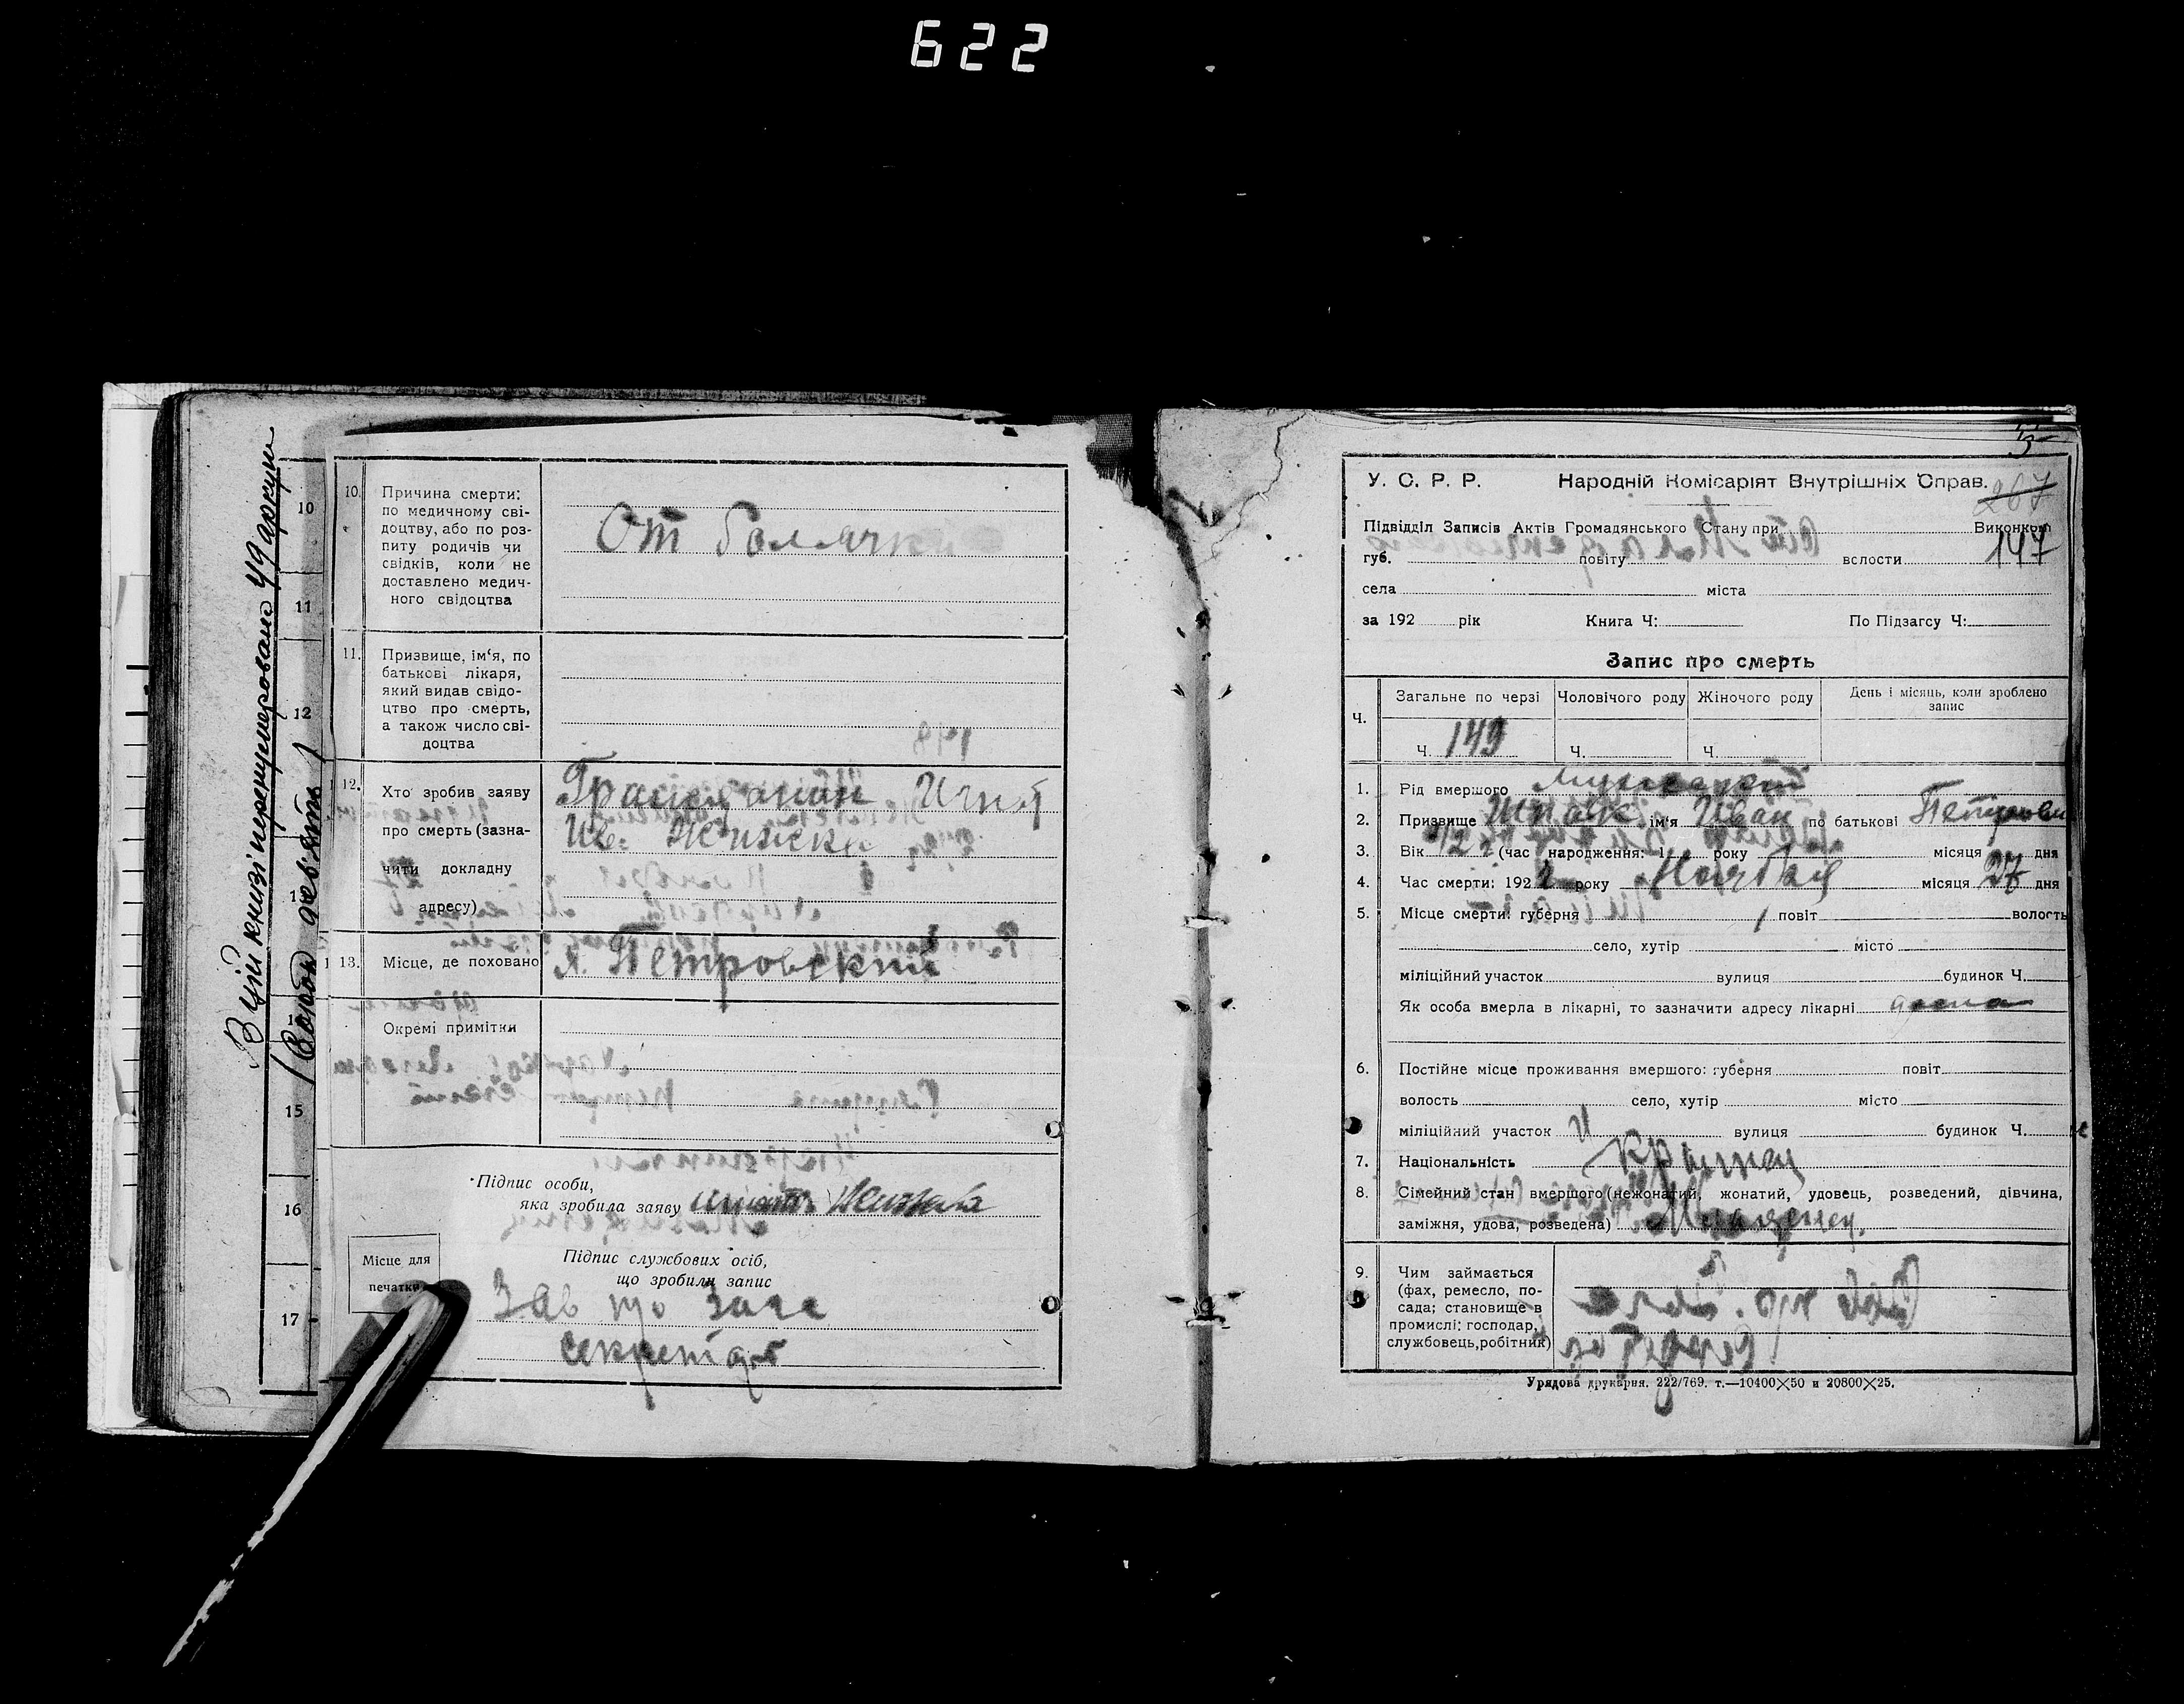 622
В цій книзі перенумеровано 49 аркуш
/Сорок девять/
10
11
12
13
15
16
17
10. Причина смерти:
по медичному сві-
доцтву, або по роз-
питу родичів чи
свідків, коли не
доставлено медич-
ного свідоцтва
От
11. Призвище, ім'я, по
батькові лікаря,
який видав свідо-
цтво про смерть,
а також число сві-
доцтва
12. Хто зробив заяву
про смерть (зазна-
чити докладну
адресу)
Гражданин Игнат
Ив.
13. Місце, де поховано
Петровский
Окремі примітки
Підпис особи,
яка зробила заяву
Підпис службових осіб,
що зробили запис
Місце для
печатки
Зав п/о Загс
секретарь
267
147
У. С. Р. Р. Народній Комісаріят Внутрішніх Справ.
Підвідділ Записів Актів Громадянського Стану при Виконком
губ. повіту вслости
села міста
за 192 рік Книга Ч: По Підзагсу Ч:
Запис про смерть
Ч. Загальне по черзі Чоловічого роду Жіночого роду День і місяць, коли зроблено
запис
Ч. 149 Ч. Ч.
1. Рід вмершого мужской
2. Призвище Шпак ім'я Иван по батькові Петрови
3. Вік (час народження: 1 року місяця дня
4. Час смерти: 1922 року Ноября місяця 27 дня
5. Місце смерти: губерня повіт волость
село, хутір місто
міліційний участок вулиця будинок Ч.
Як особа вмерла в лікарні, то зазначити адресу лікарні дома
6. Постійне місце проживання вмершого: губерня повіт
волость село, хутір місто
міліційний участок вулиця будинок Ч.
7. Національність
8. Сімейний стан вмершого (нежонатий, жонатий, удовець, розведений, дівчина,
заміжня, удова, розведена) Младенец.
9. Чим займається
(фах, ремесло, по-
сада; становище в
промислі; господар,
службовець, робітник)
Урядова друкарня. 222/769. т.—10400×50 и 20800×25.